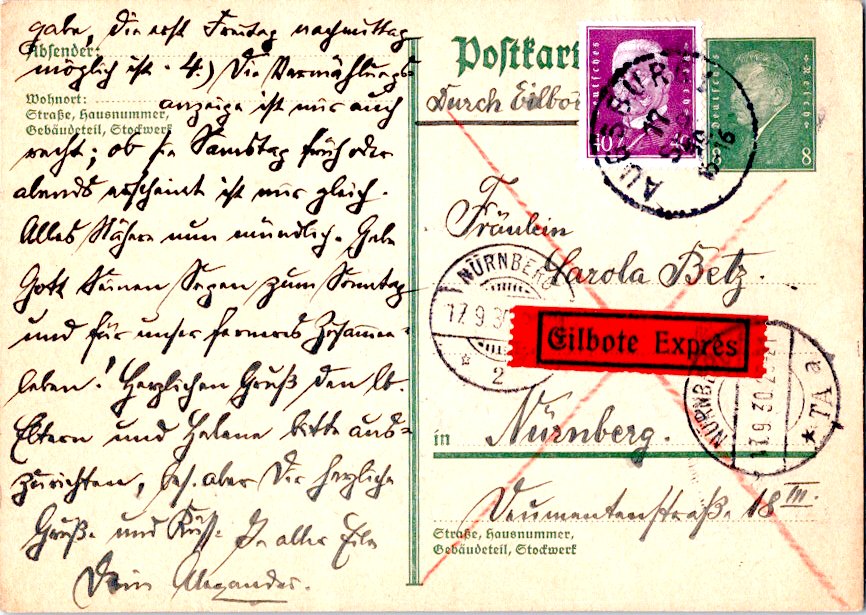 gabe, die erst Freitag nachmittag
Absender:
möglich ist. 4.) Die Vermählungs-
Wohnort:
anzeige ist mir auch
Straße, Hausnummer,
Gebäudeteil, Stockwerk
recht; ob sie Samstag früh oder
abends erscheint ist mir gleich.
Alles Nähere nun mündlich. Gebe
Gott seinen Segen zum Sonntag
und für unser ferneres Zusammen-
leben! Herzlichen Gruß den lb.
Eltern und Helene bitte aus-
zurichten, bes. aber Dir herzliche
Grüße und Küsse. In aller Eile
Dein Alexander.
Postkart
Durch Eilbot
Deutsches Reich
40
AUGSBURG
17
15-16
Deutsches Reich
8
Fräulein
Carola Betz.
NÜRNBERG
17.9.30
2
Eilbote Exprès
NÜRNB
17.9.30
TA a
in Nürnberg.
Veumentenstraße 18 III.
Straße, Hausnummer,
Gebäudeteil, Stockwerk